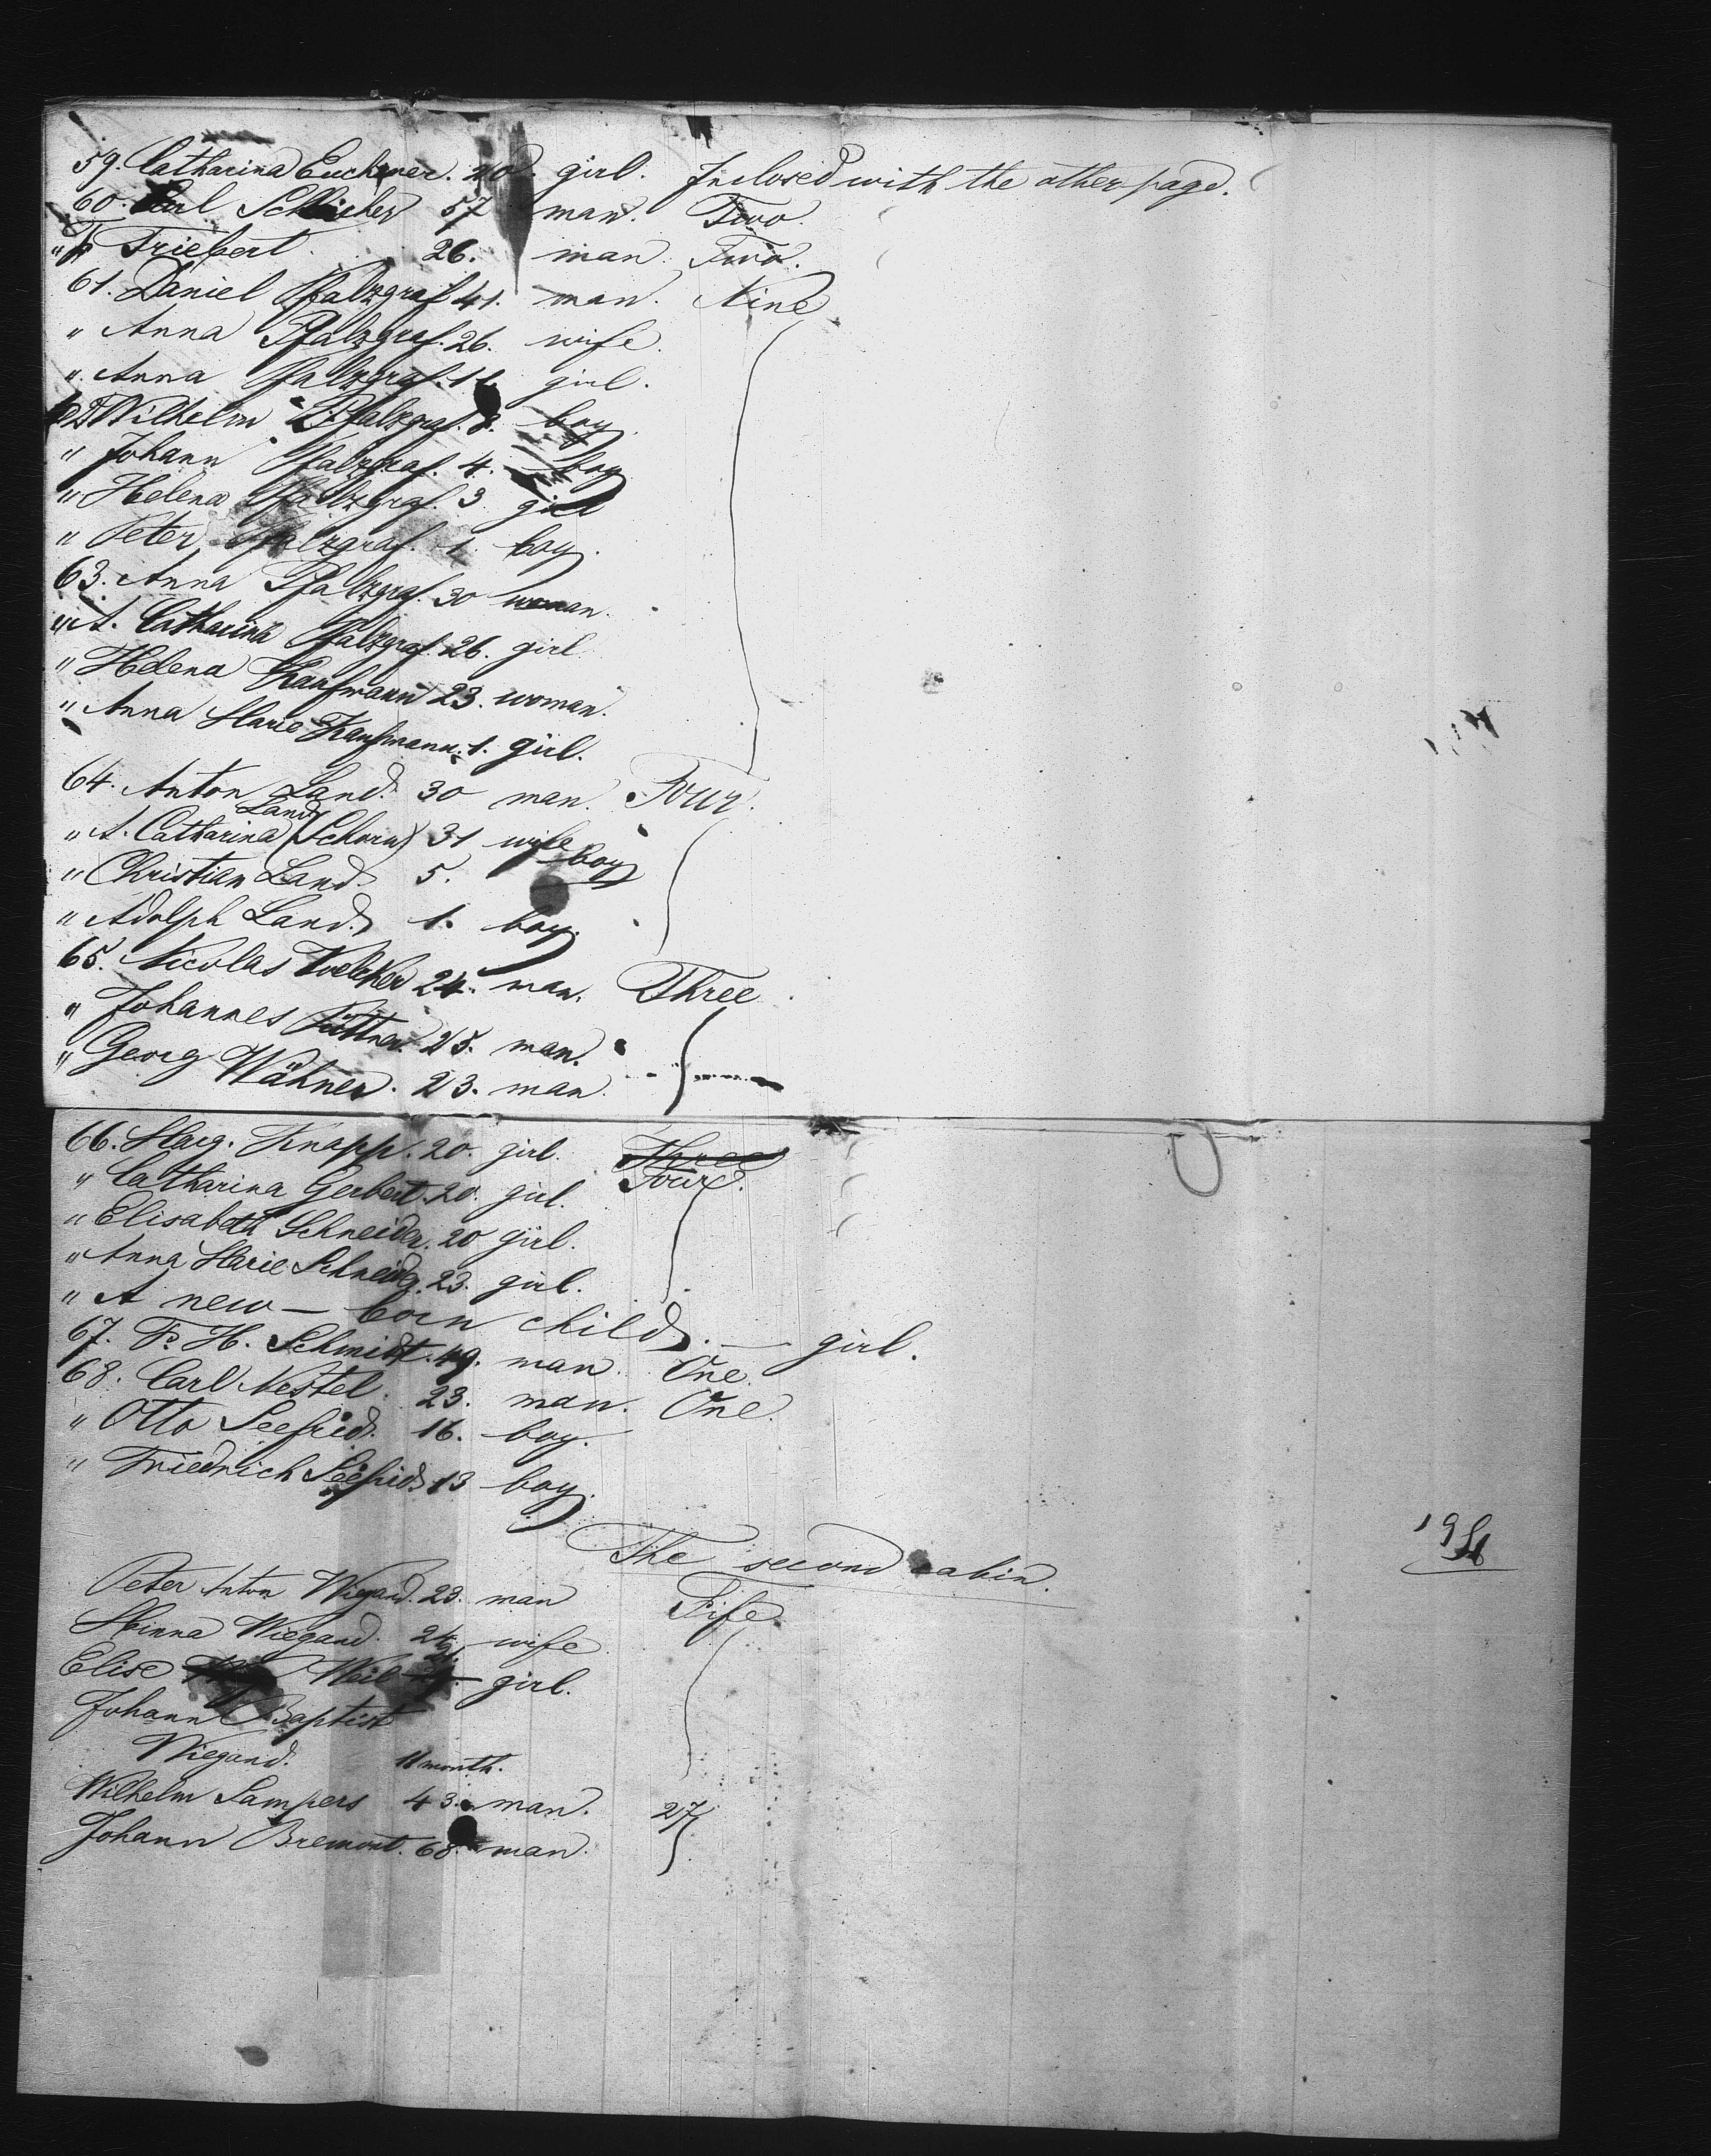 59. Catharina Euchner. 20. girl. Inclosed with the other page.
60. Carl Schleicher 57 man. Two.
" Triebert. 26. man. Two.
61. Daniel Pfalzgraf 41. man. Nine
" Anna Pfalzgraf. 26. wife.
" Anna Pfalzgraf. 11. girl.
62 Wilhelm Pfalzgraf. 8. boy.
" Johann Pfalzgraf. 4. boy
" Helena Pfalzgraf. 3 girl
" Peter Pfalzgraf. 1. boy.
63. Anna Pfalzgraf. 30 woman.
" A. Catharina Pfalzgraf. 26. girl
" Helena Kaufmann 23. woman.
" Anna Marie Kaufmann. 1. girl.
64. Anton Land. 30 man. Four.
Land
" A. Catharina (Schorn) 31 wife
" Christian Land. 5. boy
" Adolph Land. 1. boy.
65. Nicolas Voelcker 24. man. Three
" Johannes Püttner. 25. man.
" Georg Wähner. 23. man.
66. Marg. Knapp. 20. girl. Three
Four.
" Catharina Gerbert. 20. girl.
" Elisabeth Schneider. 20 girl.
" Anna Marie Schneider. 23. girl.
" A new-born child. — girl.
67. Fr. H. Schmidt. 49. man. One.
68. Carl Nestel. 23. man. One.
" Otto Seefried. 16. boy.
" Friedrich Seefried. 13 boy.
The second cabin.
Peter Anton Wiegand. 23. man Fife.
Minna Wiegand. 24. wife
Elise Weil 21. girl.
Johann Baptist
Wiegand. 11 month.
Wilhelm Sampers 43. man. 27
Johann Bremont. 68. man.